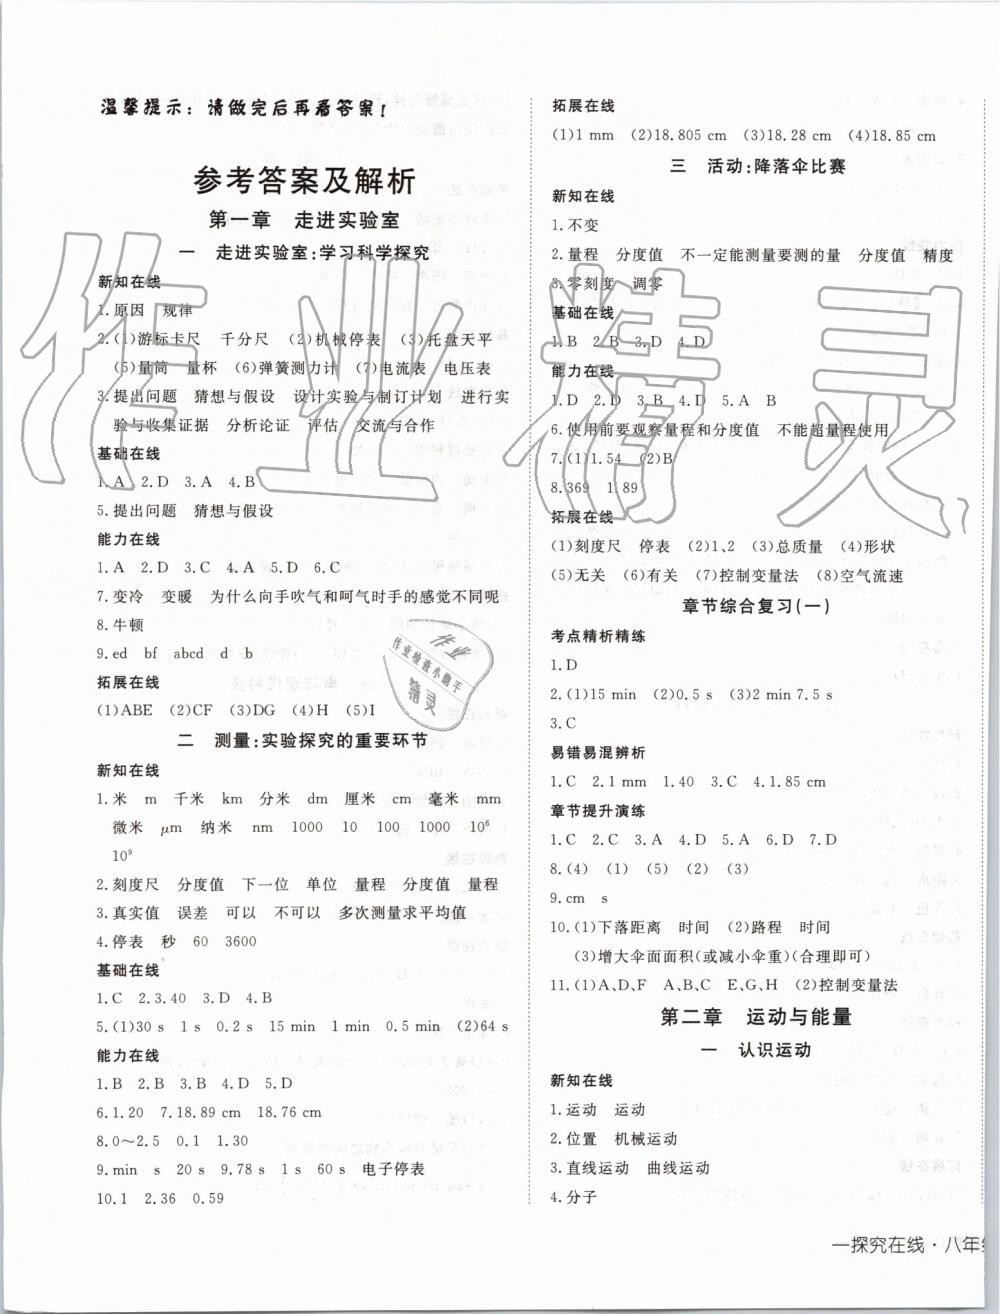 温馨提示：请做完后再看答案！
参考答案及解析
第一章 走进实验室
一 走进实验室：学习科学探究
新知在线
1.原因 规律
2.(1)游标卡尺 千分尺 (2)机械停表 (3)托盘天平
(5)量筒 量杯 (6)弹簧测力计 (7)电流表 电压表
3.提出问题 猜想与假设 设计实验与制订计划 进行实
验与收集证据 分析论证 评估 交流与合作
基础在线
1.A 2.D 3.A 4.B
5.提出问题 猜想与假设
能力在线
1.A 2.D 3.C 4.A 5.D 6.C
7.变冷 变暖 为什么向手吹气和呵气时手的感觉不同呢
8.牛顿
9.ed bf abcd d b
拓展在线
(1)ABE (2)CF (3)DG (4)H (5)I
二 测量：实验探究的重要环节
新知在线
1.米 m 千米 km 分米 dm 厘米 cm 毫米 mm
微米 μm 纳米 nm 1000 10 100 1000 10⁶
10⁹
2.刻度尺 分度值 下一位 单位 量程 分度值 量程
3.真实值 误差 可以 不可以 多次测量求平均值
4.停表 秒 60 3600
基础在线
1.C 2.3.40 3.D 4.B
5.(1)30 s 1 s 0.2 s 15 min 1 min 0.5 min (2)64 s
能力在线
1.B 2.B 3.D 4.D 5.D
6.1.20 7.18.89 cm 18.76 cm
8.0～2.5 0.1 1.30
9.min s 20 s 9.78 s 1 s 60 s 电子停表
10.1 2.36 0.59
拓展在线
(1)1 mm (2)18.805 cm (3)18.28 cm (4)18.85 cm
三 活动：降落伞比赛
新知在线
1.不变
2.量程 分度值 不一定能测量要测的量 分度值 精度
3.零刻度 调零
基础在线
1.B 2.B 3.D 4.D
能力在线
1.D 2.D 3.B 4.D 5.A B
6.使用前要观察量程和分度值 不能超量程使用
7.(1)1.54 (2)B
8.369 1.89
拓展在线
(1)刻度尺 停表 (2)1、2 (3)总质量 (4)形状
(5)无关 (6)有关 (7)控制变量法 (8)空气流速
章节综合复习(一)
考点精析精练
1.D
2.(1)15 min (2)0.5 s (3)2 min 7.5 s
3.C
易错易混辨析
1.C 2.1 mm 1.40 3.C 4.1.85 cm
章节提升演练
1.C 2.C 3.A 4.D 5.A 6.D 7.D
8.(4) (1) (5) (2) (3)
9.cm s
10.(1)下落距离 时间 (2)路程 时间
(3)增大伞面面积(或减小伞重)(合理即可)
11.(1)A、D、F A、B、C E、G、H (2)控制变量法
第二章 运动与能量
一 认识运动
新知在线
1.运动 运动
2.位置 机械运动
3.直线运动 曲线运动
4.分子
一探究在线·八年级
作业精灵
作业
作业检查小助手
精灵